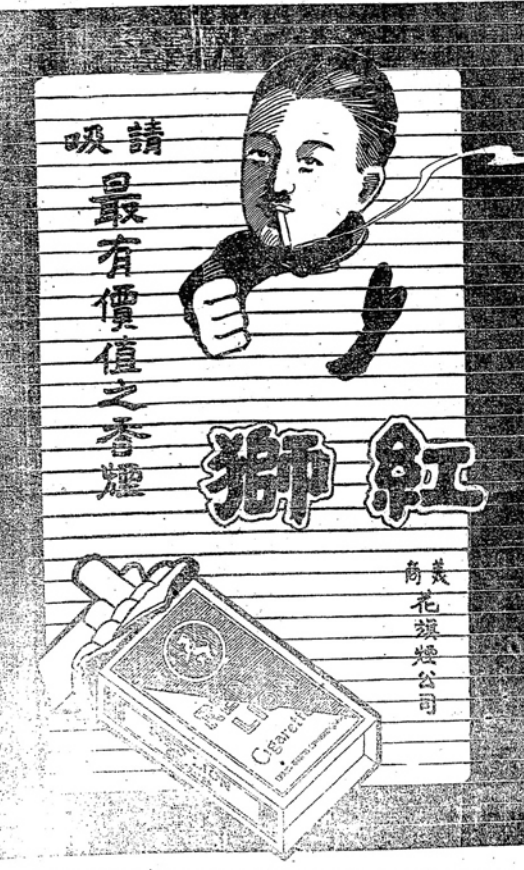 請吸
最有價值之香煙
紅獅
美商
花旗煙公司
RED
LION
Cigarettes